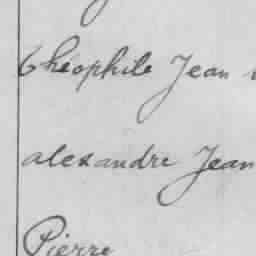 Théophile Jean
alexandre Jean
Pierre